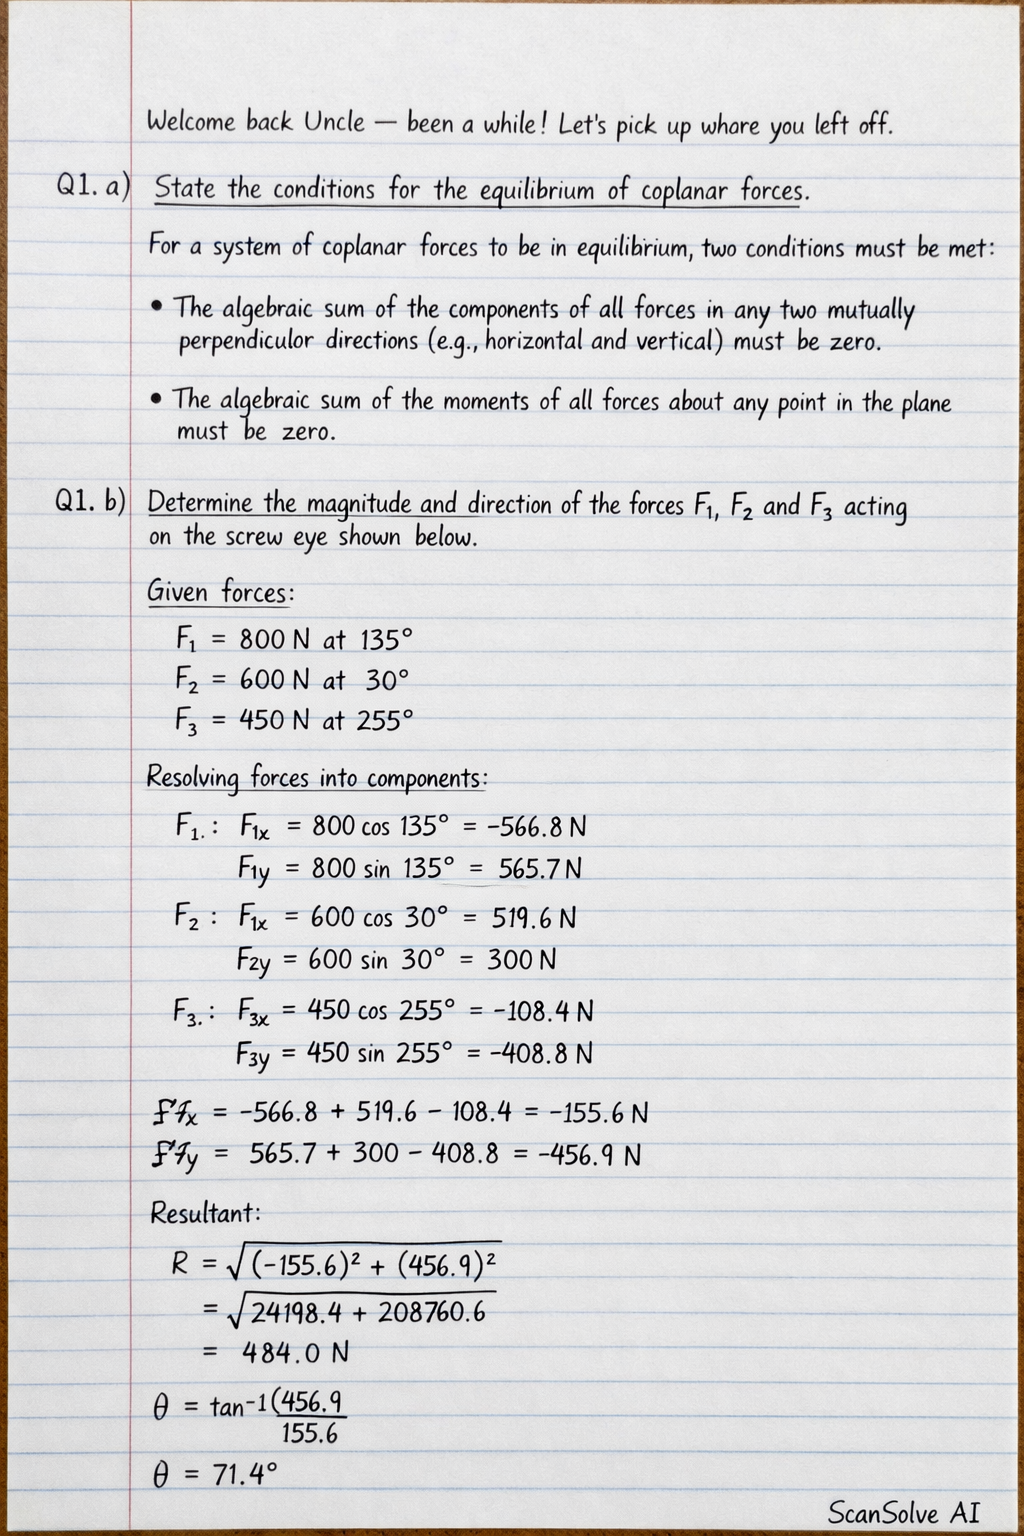 Welcome back Uncle — been a while! Let's pick up whare you left off.
Q1. a) State the conditions for the equilibrium of coplanar forces.
For a system of coplanar forces to be in equilibrium, two conditions must be met:
• The algebraic sum of the components of all forces in any two mutually
perpendiculor directions (e.g., horizontal and vertical) must be zero.
• The algebraic sum of the moments of all forces about any point in the plane
must be zero.
Q1. b) Determine the magnitude and direction of the forces F₁, F₂ and F₃ acting
on the screw eye shown below.
Given forces:
F₁ = 800 N at 135°
F₂ = 600 N at 30°
F₃ = 450 N at 255°
Resolving forces into components:
F₁.: F₁ₓ = 800 cos 135° = -566.8 N
F₁y = 800 sin 135° = 565.7 N
F₂ : F₁ₓ = 600 cos 30° = 519.6 N
F₂y = 600 sin 30° = 300 N
F₃.: F₃ₓ = 450 cos 255° = -108.4 N
F₃y = 450 sin 255° = -408.8 N
= -566.8 + 519.6 - 108.4 = -155.6 N
= 565.7 + 300 - 408.8 = -456.9 N
Resultant:
R = √(-155.6)² + (456.9)²
= √24198.4 + 208760.6
= 484.0 N
θ = tan-1(456.9
155.6
θ = 71.4°
ScanSolve AI